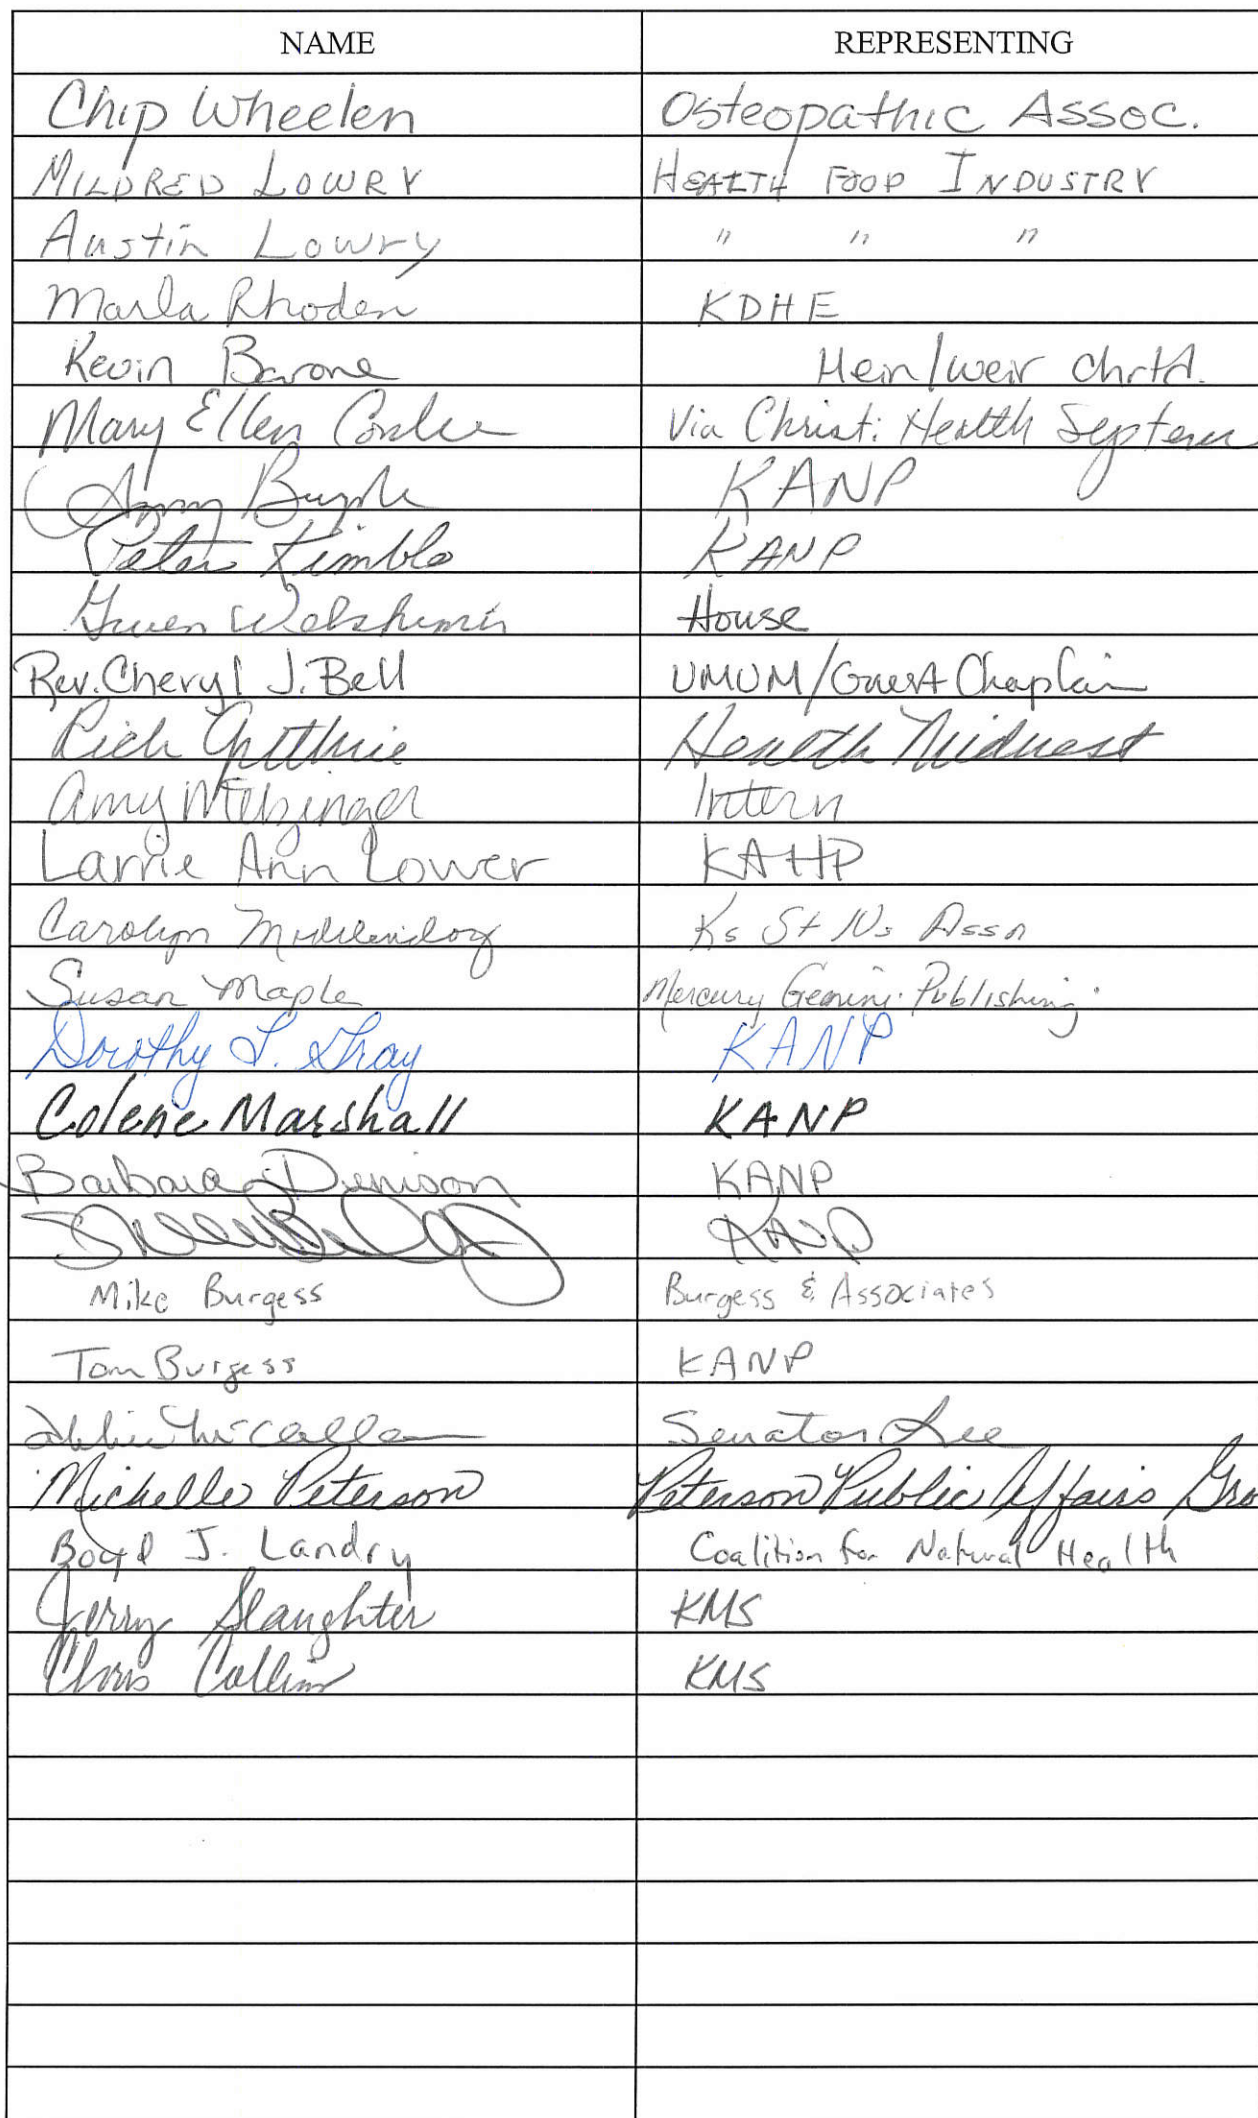 NAME REPRESENTING
Chip Wheelen Osteopathic Assoc.
MILDRED LOWRY HEALTH FOOD INDUSTRY
Austin Lowry " " "
Marla Rhoden KDHE
Kevin Barone Hein/Weir Chrtd.
Mary Ellen Conlee Via Christi Health System
KANP
Peter Kimble KANP
Gwen Welshimer House
Rev. Cheryl J. Bell UMUM/Guest Chaplain
Rich Guthrie Health Midwest
Amy Intern
Larrie Ann Lower KAHP
Carolyn Ks St Ns Assn
Susan Maple Mercury Gemini Publishing
Dorothy L. Gray KANP
Colene Marshall KANP
Barbara Denison KANP
KANP
Mike Burgess Burgess & Associates
Tom Burgess KANP
Senator Lee
Michelle Peterson Peterson Public Affairs Gro
Boyd J. Landry Coalition for Natural Health
Jerry Slaughter KMS
Chris Collins KMS